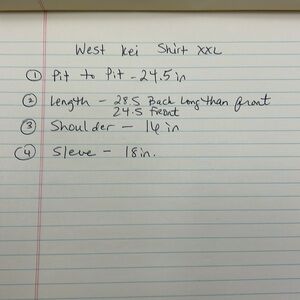 West Kei Shirt XXL
① Pit to Pit - 24.5 in
② Length - 28.5 Back Long than front
24.5 Front
③ Shoulder - 16 in
④ Sleve - 18 in.